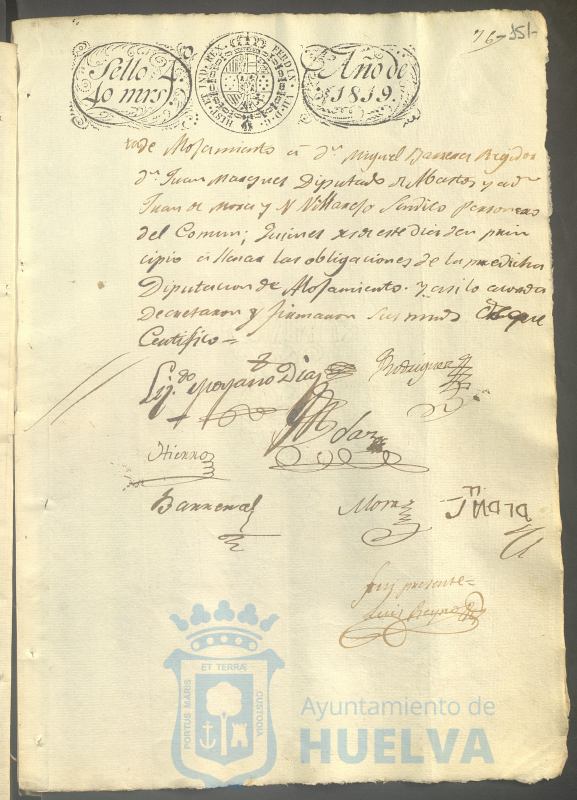 76 351
Sello
40 mrs
HISP. ET IND. REX. FERDIN. VII. D. G.
Año de
1819.
de Alojamiento á Dn. Miguel Barrera Regidor
Dn. Juan Marquez Diputado de Abastos y a Dn
Juan de Mora y Villarejo Sindico Personero
del Comun; Quienes desde este dia den prin
cipio á llenar las obligaciones de la predicha
Diputacion de Alojamiento. Y asi lo acorda
decretaron y firmaron Sus mrds de que
Certifico =
Lizdo Moyano Diaz
Rodriguez
Hierro
Barrera
Mora
fui presente =
Luis Reyno
PORTUS MARIS
ET TERRÆ
CUSTODIA
Ayuntamiento de
HUELVA